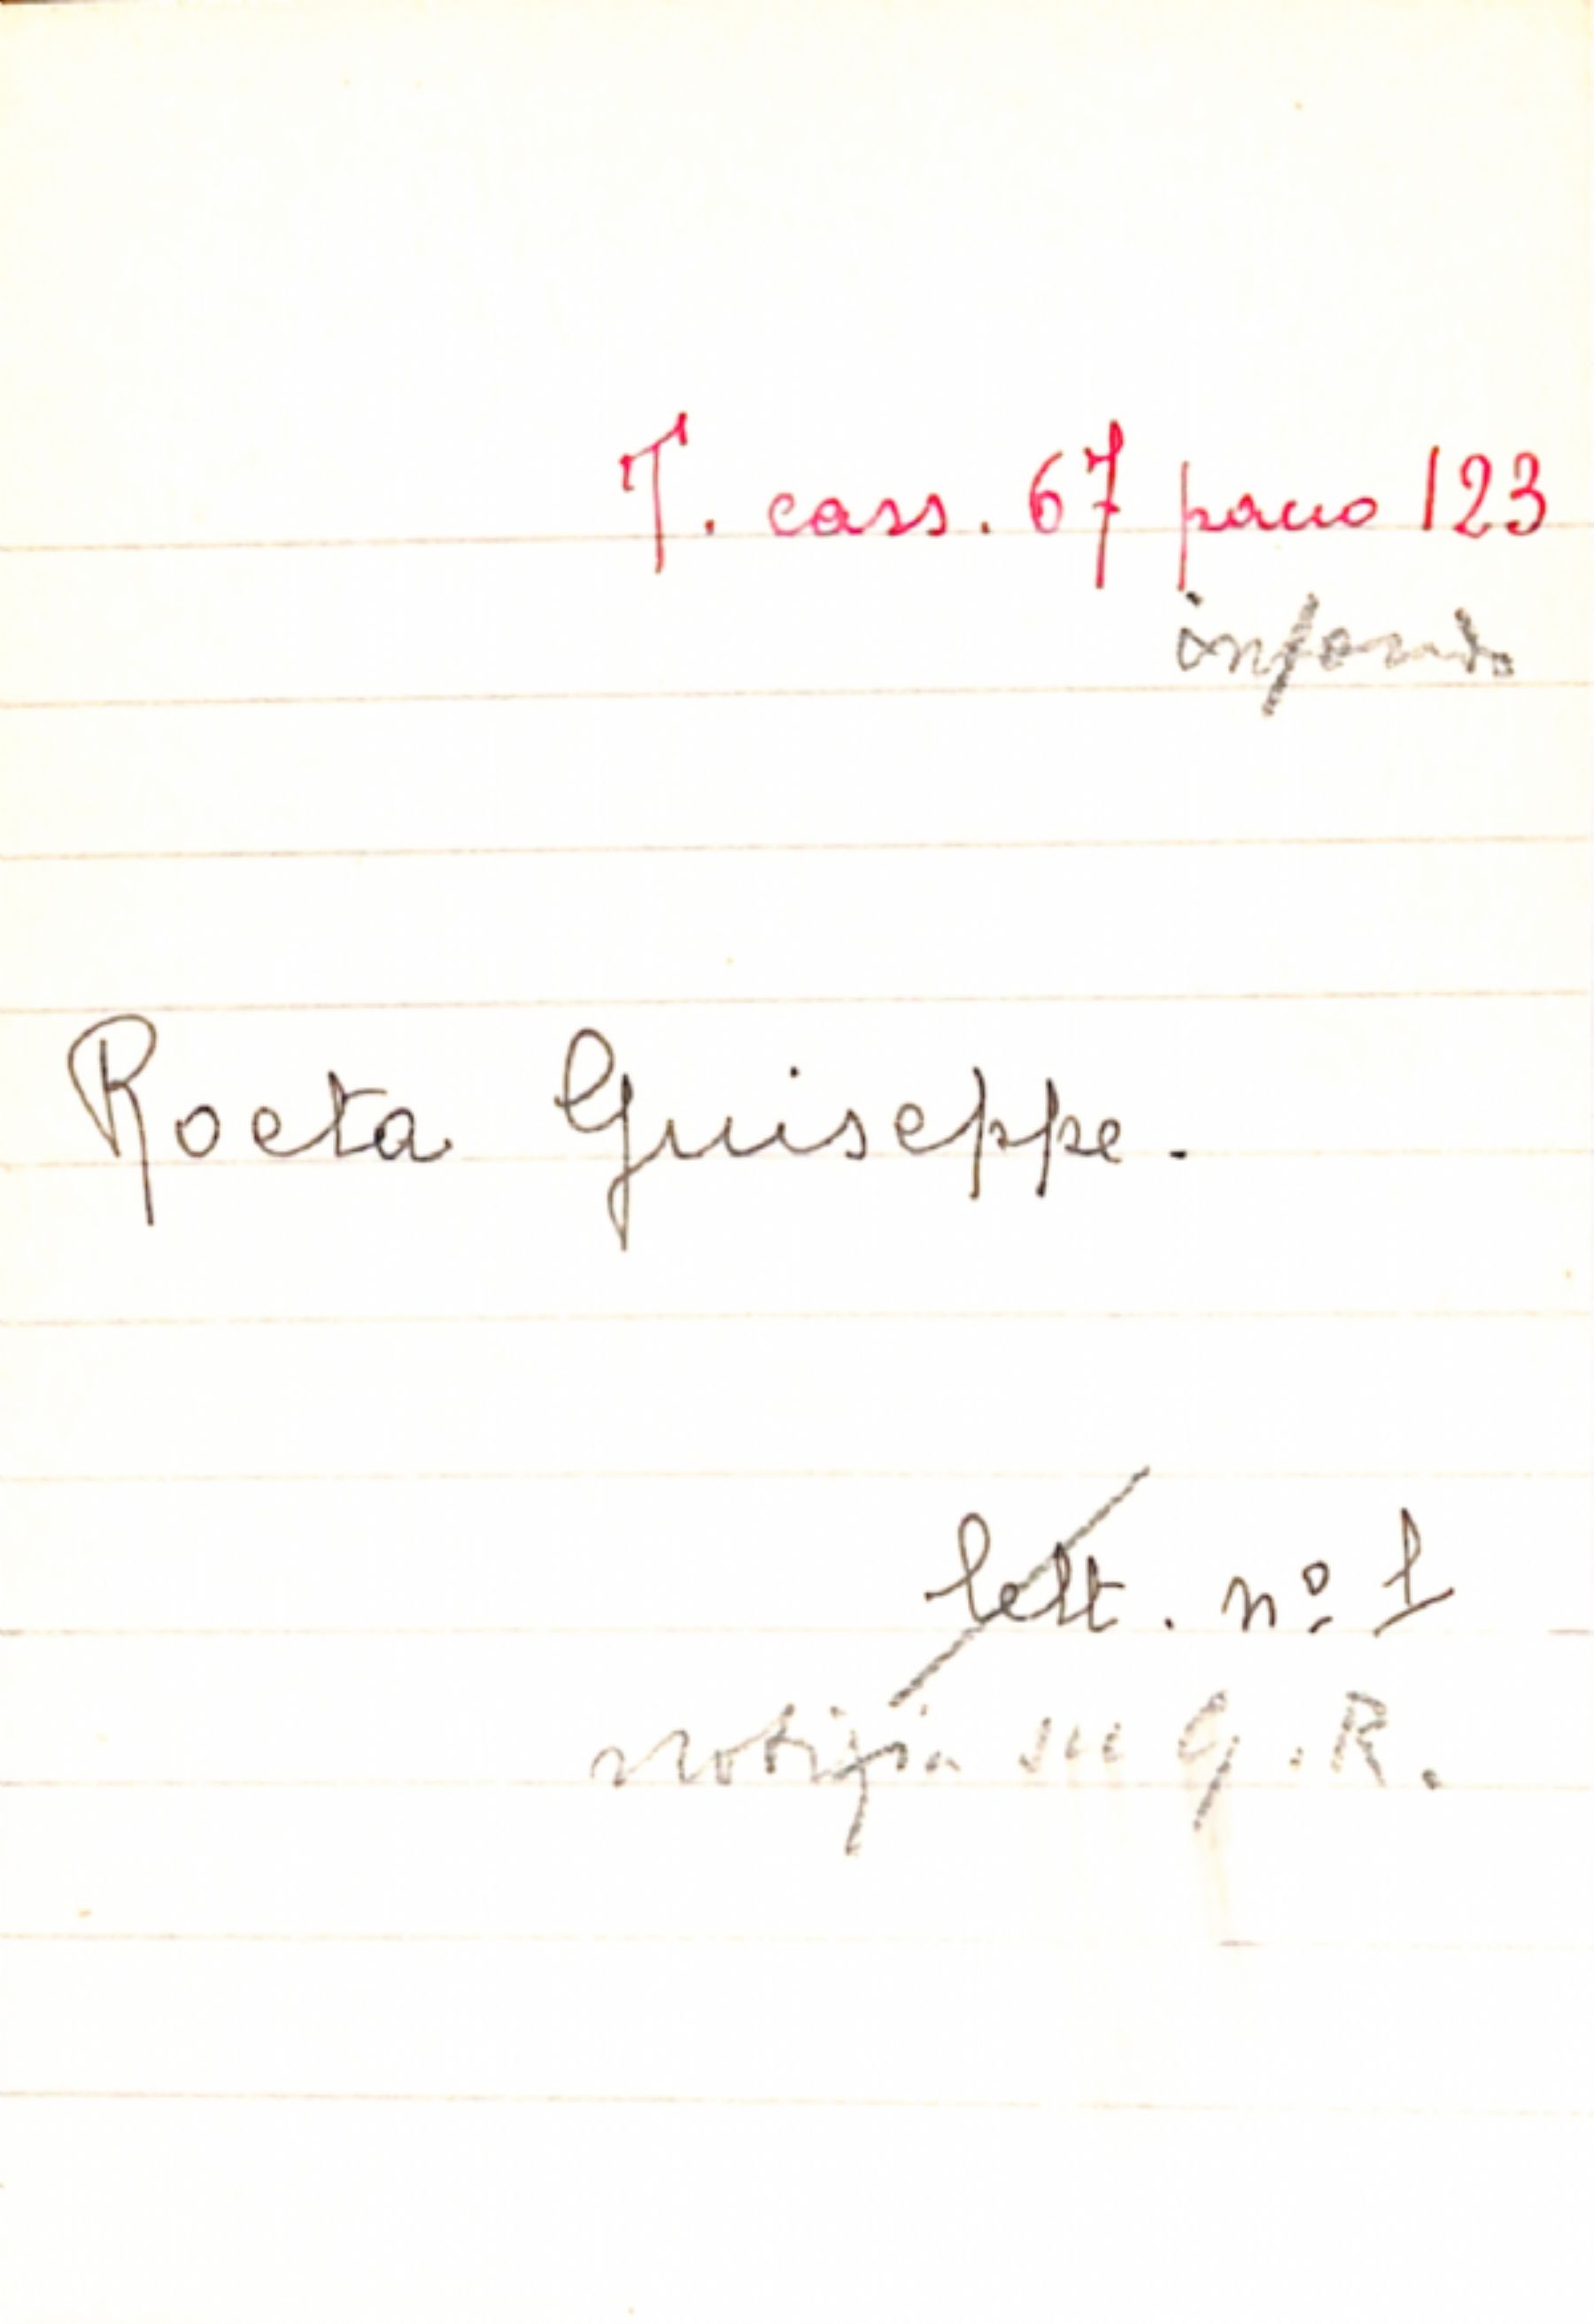 T. cass. 67 pacco 123
in fondo
Rocta Giuseppe.
lett. nº 1
notizia su G. R.